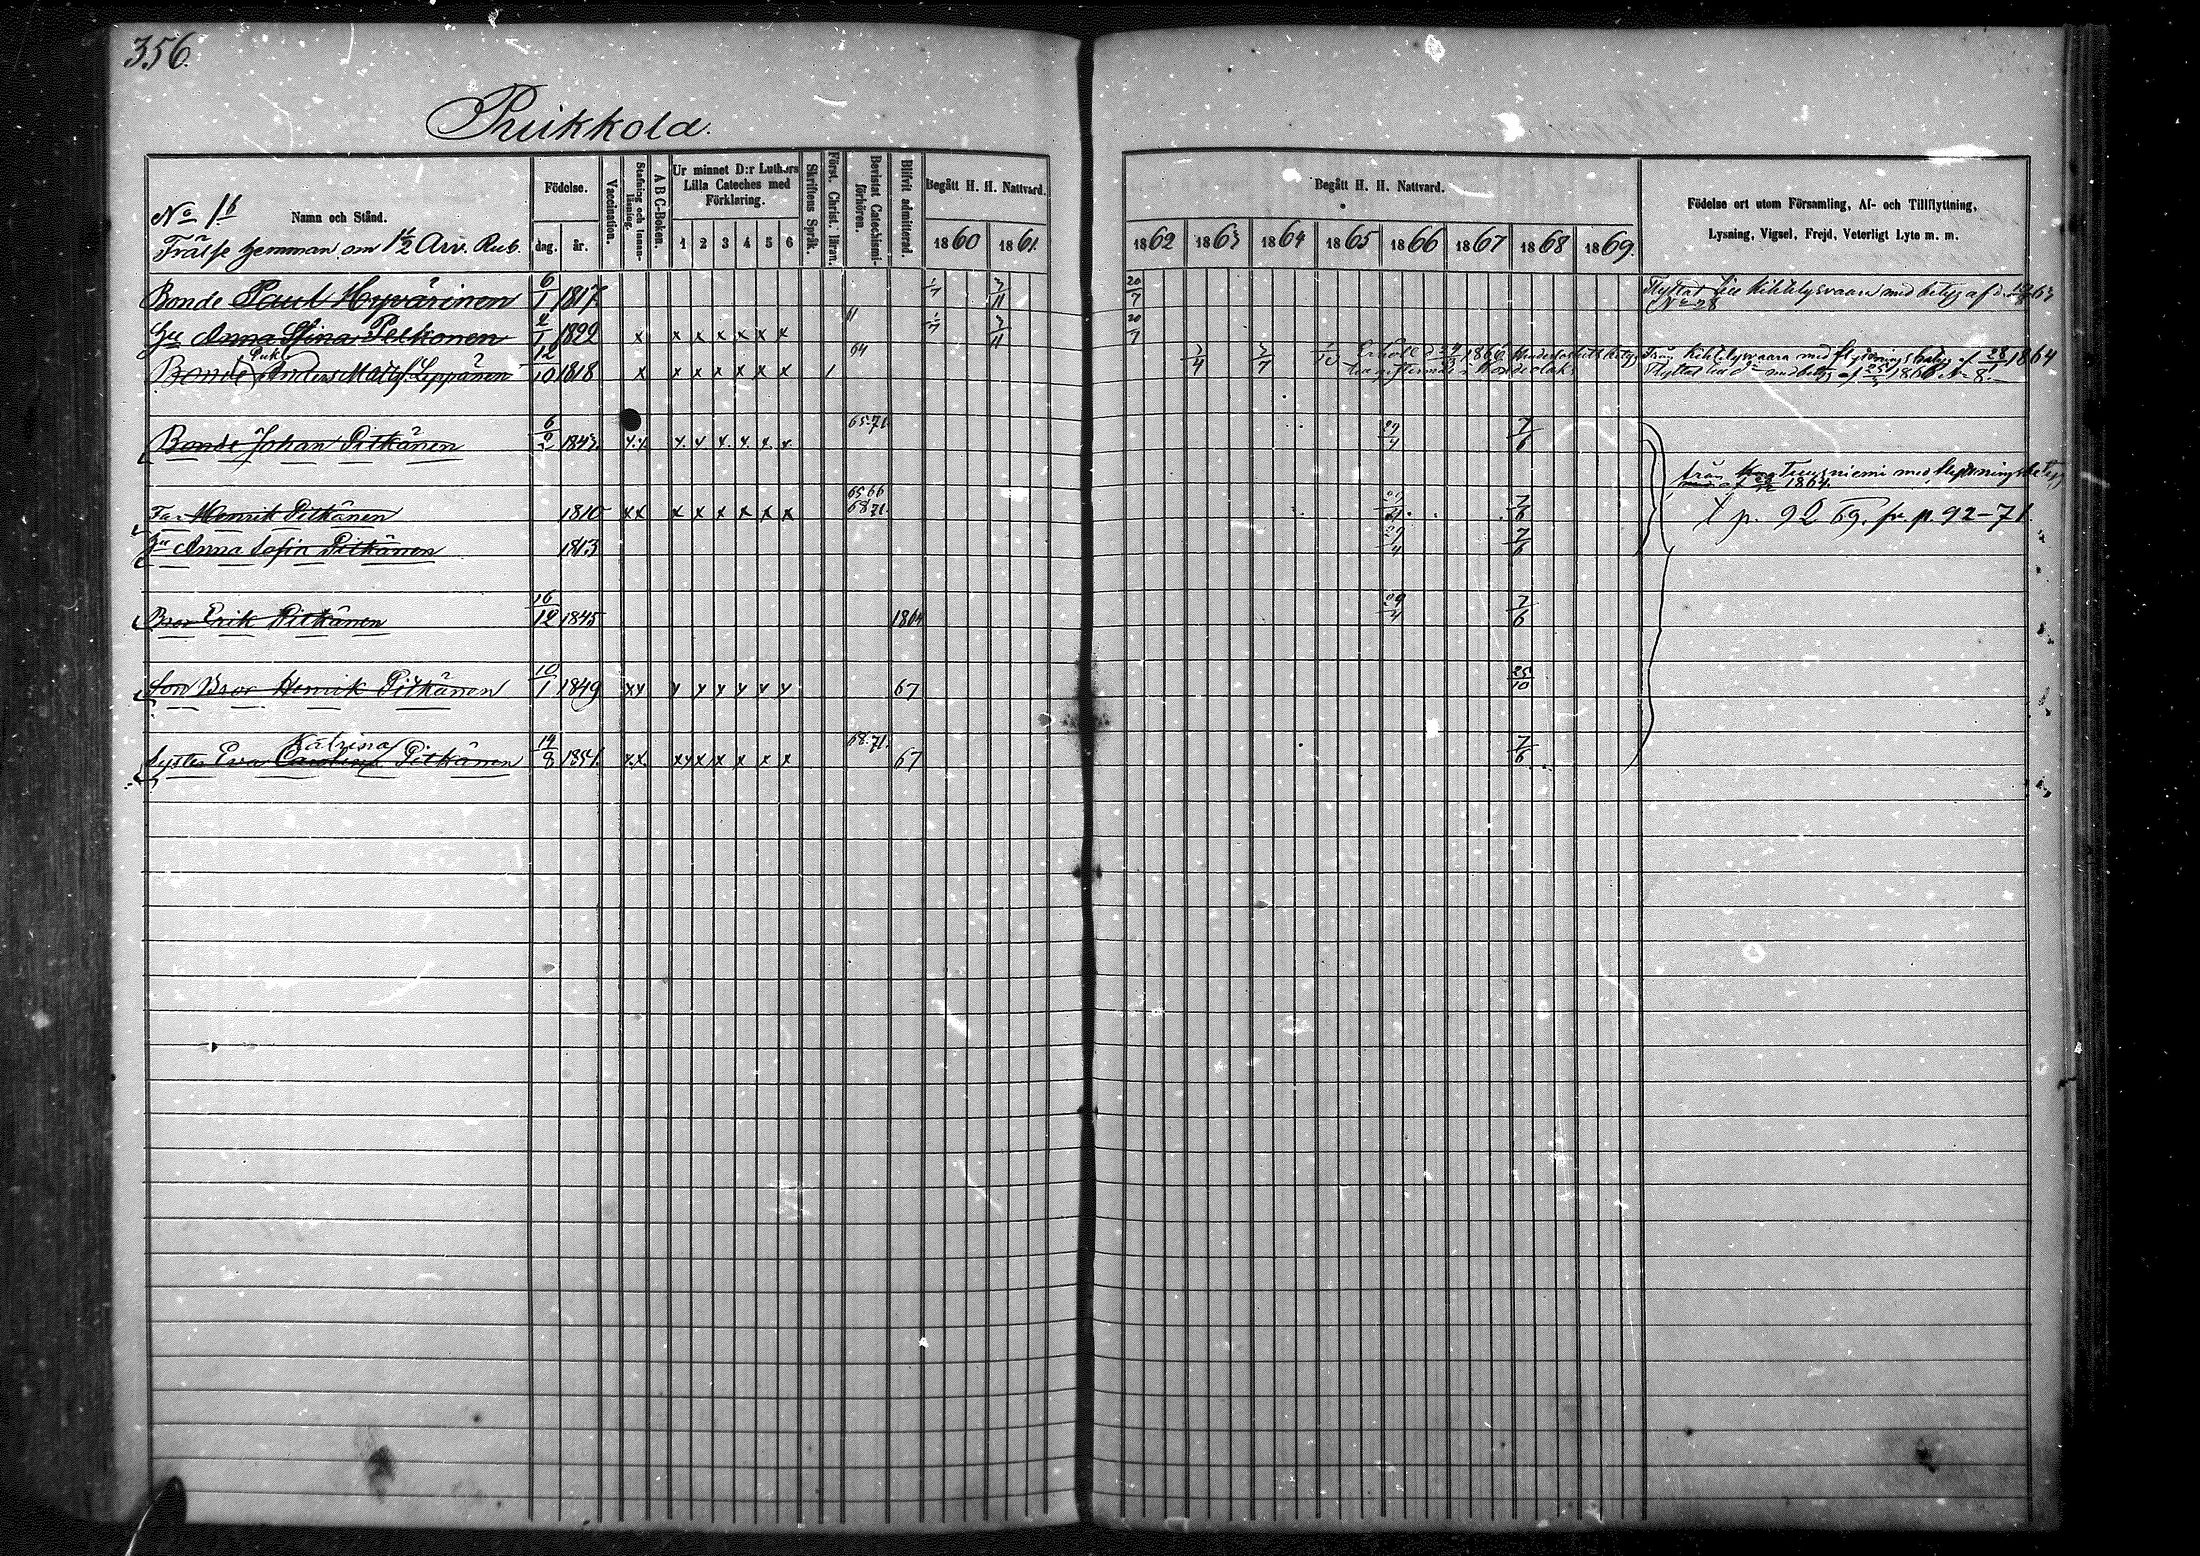 356.
Puikkola.
No 1b
Namn och Stånd.
Frälse hemman om 1½ Arv. Rub.
Födelse.
dag. år.
Vaccination.
Stafning och Innanläsning.
A B C-Boken.
Ur minnet D:r Luthers Lilla Cateches med Förklaring.
1 2 3 4 5 6
Skriftens Språk.
Förest. Christ. läran.
Bevistat Catechismiförhören.
Blifvit admitterad.
Begått H. H. Nattvard.
1860 1861
Begått H. H. Nattvard.
1862 1863 1864 1865 1866 1867 1868 1869.
Födelse ort utom Församling, Af- och Tillflyttning,
Lysning, Vigsel, Frejd, Veterligt Lyte m. m.
Bonde Paul Hyvärinen 6/1 1817 1/7 3/11 20/7 Flyttat till Kihtelysvaara med betyg af d. 63
No 28
Hu Anna Stina Pelkonen 2/1 1822 x x x x x x x 1/7 3/11 20/7
Bonde Anders Matts. Leppänen 12/10 1818 x x x x x x x 1 64 3/4 1866 Från Kihtelysvaara med flyttningsbetyg af 28 1864
Flyttat med betyg af 1866 No 8.
Bonde Johan Pitkänen 6/2 1843. x x x x x x x x 65-71 29/4 7/6
från Tuusniemi med flyttningsbetyg
af 1864.
Far Henrik Pitkänen 1810 x x x x x x x x 65 66 68 71 29/4 7/6 p. 92 69. p. 92-71.
Hu Anna Sofia Pitkänen 1813 29/4 7/6
Bror Erik Pitkänen 16/12 1845 1864 29/4 7/6
Son Bror Henrik Pitkänen 10/1 1849 x x x x x x x x 67 25/10
Katrina
Syster Eva Carolina Pitkänen 14/8 1851. x x x x x x x x 68.71. 67 7/6